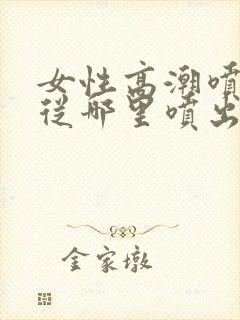 女性高潮噴
從哪里噴出
金家墩